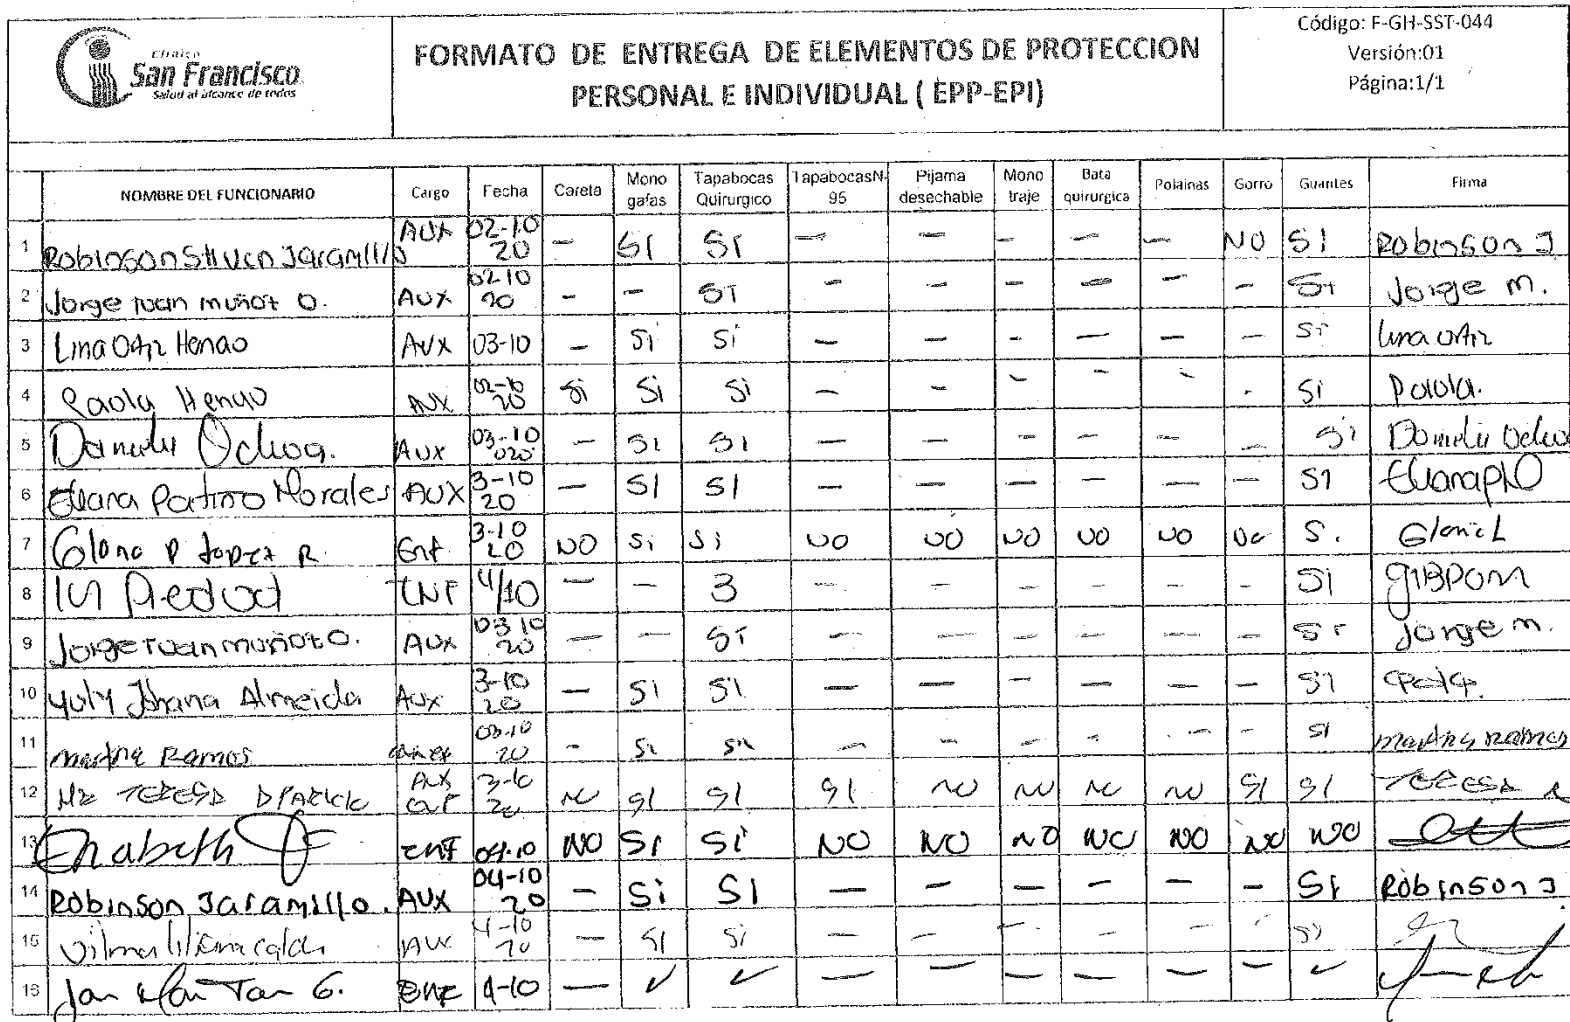 Clínica
San Francisco
Salud al alcance de todos
FORMATO DE ENTREGA DE ELEMENTOS DE PROTECCION
PERSONAL E INDIVIDUAL ( EPP-EPI)
Código: F-GH-SST-044
Versión:01
Página:1/1
NOMBRE DEL FUNCIONARIO Cargo Fecha Careta Mono gafas Tapabocas Quirurgico TapabocasN-95 Pijama desechable Mono traje Bata quirurgica Polainas Gorro Guantes Firma
1 Robinson Stiven Jaramillo AUX 02-10 20 — SI SI — — — — — NO SI Robinson J
2 Jorge Ivan muñoz O. AUX 02-10 20 - - SI - - - - - - SI Jorge m.
3 Lina Ortiz Henao AUX 03-10 - Si Si - - - - - - Si Lina Ortiz
4 Paola Henao AUX 02-10 20 Si Si Si - - - - - - Si Paola.
5 Ochoa. AUX 03-10 020 - Si SI - - - - - - Si
6 Eliana Patiño Morales AUX 3-10 20 - SI SI - - - - - - SI
7 P Lopez R. Enf. 3-10 20 NO Si Si NO NO NO NO NO No S.
8 Piedad ENF 4/10 - - 3 - - - - - - SI
9 Jorge Ivan muñoz O. AUX 03 10 20 - - SI - - - - - - SI Jorge m.
10 Yuly Johana Almeida AUX 3-10 20 - SI SI - - - - - - SI
11 Martha Ramos 03-10 20 - Si Si - - - - - - SI Martha Ramos
12 TERESA AUX ENF 3-10 20 NO SI SI SI NO NO NO NO SI SI TERESA
13 ENF 04-10 NO SI SI NO NO NO NO NO NO NO
14 Robinson Jaramillo. AUX 04-10 20 - Si SI - - - - - - SI Robinson J
15 Vilma AUX 4-10 20 - SI Si - - - - - - Si
16 G. ENF 4-10 — ✓ ✓ — — — — — — ✓